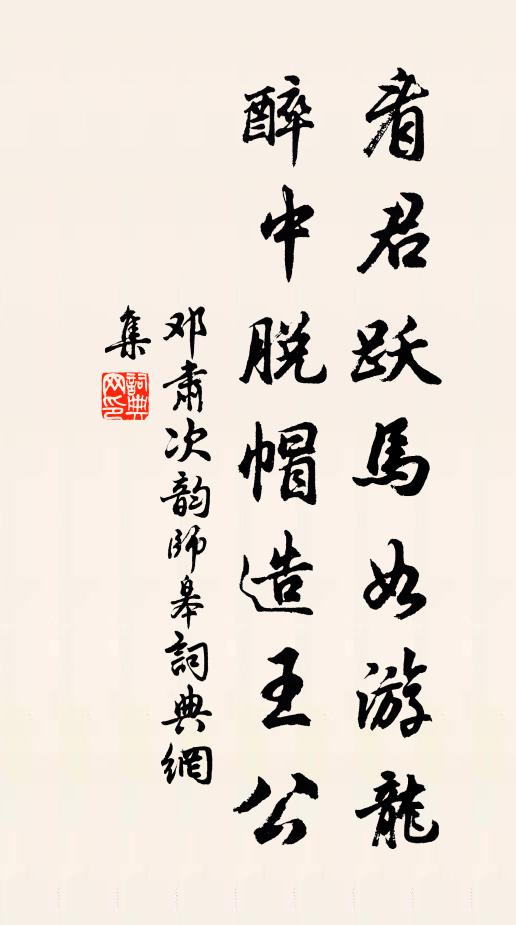 看君跃馬如游龍
醉中脱帽造王公
邓肅次韵師皋詞典網
集
詞典
网印